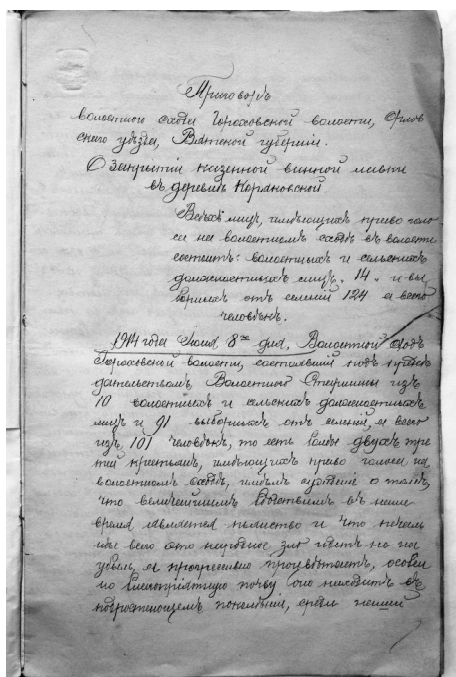 Приговоръ
волостного схода Гороховской волости, Орлов
скаго уѣзда, Вятской губерніи.
О закрытіи казенной винной лавки
въ деревнѣ Кормановской
Всѣхъ лицъ, имѣющихъ право голо
са на волостномъ сходѣ въ волости
состоитъ: волостныхъ и сельскихъ
должностныхъ лицъ. 14. и вы
борныхъ отъ селеній 124 а всего
человѣкъ.
1914 года Іюля 8го дня, Волостной сходъ
Гороховской волости, состоявшій подъ предсѣ
дательствомъ Волостного Старшины изъ
10 волостныхъ и сельскихъ должностныхъ
лицъ и 91 выборныхъ отъ селеній, а всего
изъ 101 человѣкъ, то есть болѣе двухъ тре
тей крестьянъ, имѣющихъ право голоса на
волостномъ сходѣ, имѣлъ сужденіе о томъ,
что величайшимъ бѣдствіемъ въ наше
время является пьянство и что
всего это народное зло идетъ не на
убыль, а прогрессивно процвѣтаетъ, особен
но благопріятную почву оно находитъ въ
подростающемъ поколѣніи, среди нашей